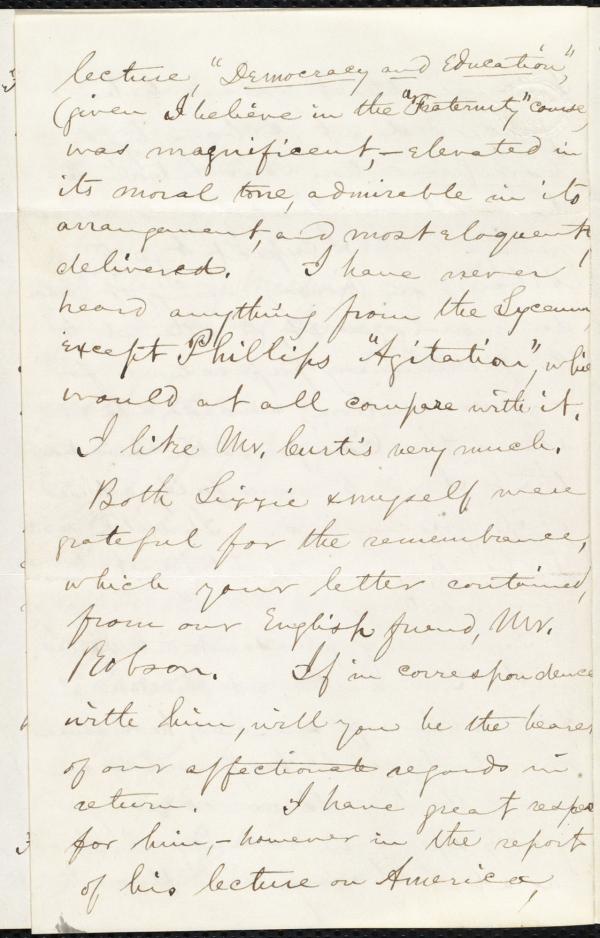 lecture, "Democracy and Education",
(given I believe in the "Fraternity" course,
was magnificent,—elevated in
its moral tone, admirable in its
arrangement, and most eloquently
delivered. I have never
heard anything from the Lyceum,
except Phillips "Agitation", which
would at all compare with it.
I like Mr. Curtis very much.
Both Lizzie & myself were
grateful for the remembrance,
which your letter contained,
from our English friend, Mr.
Robson. If in correspondence
with him, will you be the bearer
of our affectionate regards in
return. I have great respec
for him,—however in the report
of his lecture on America,